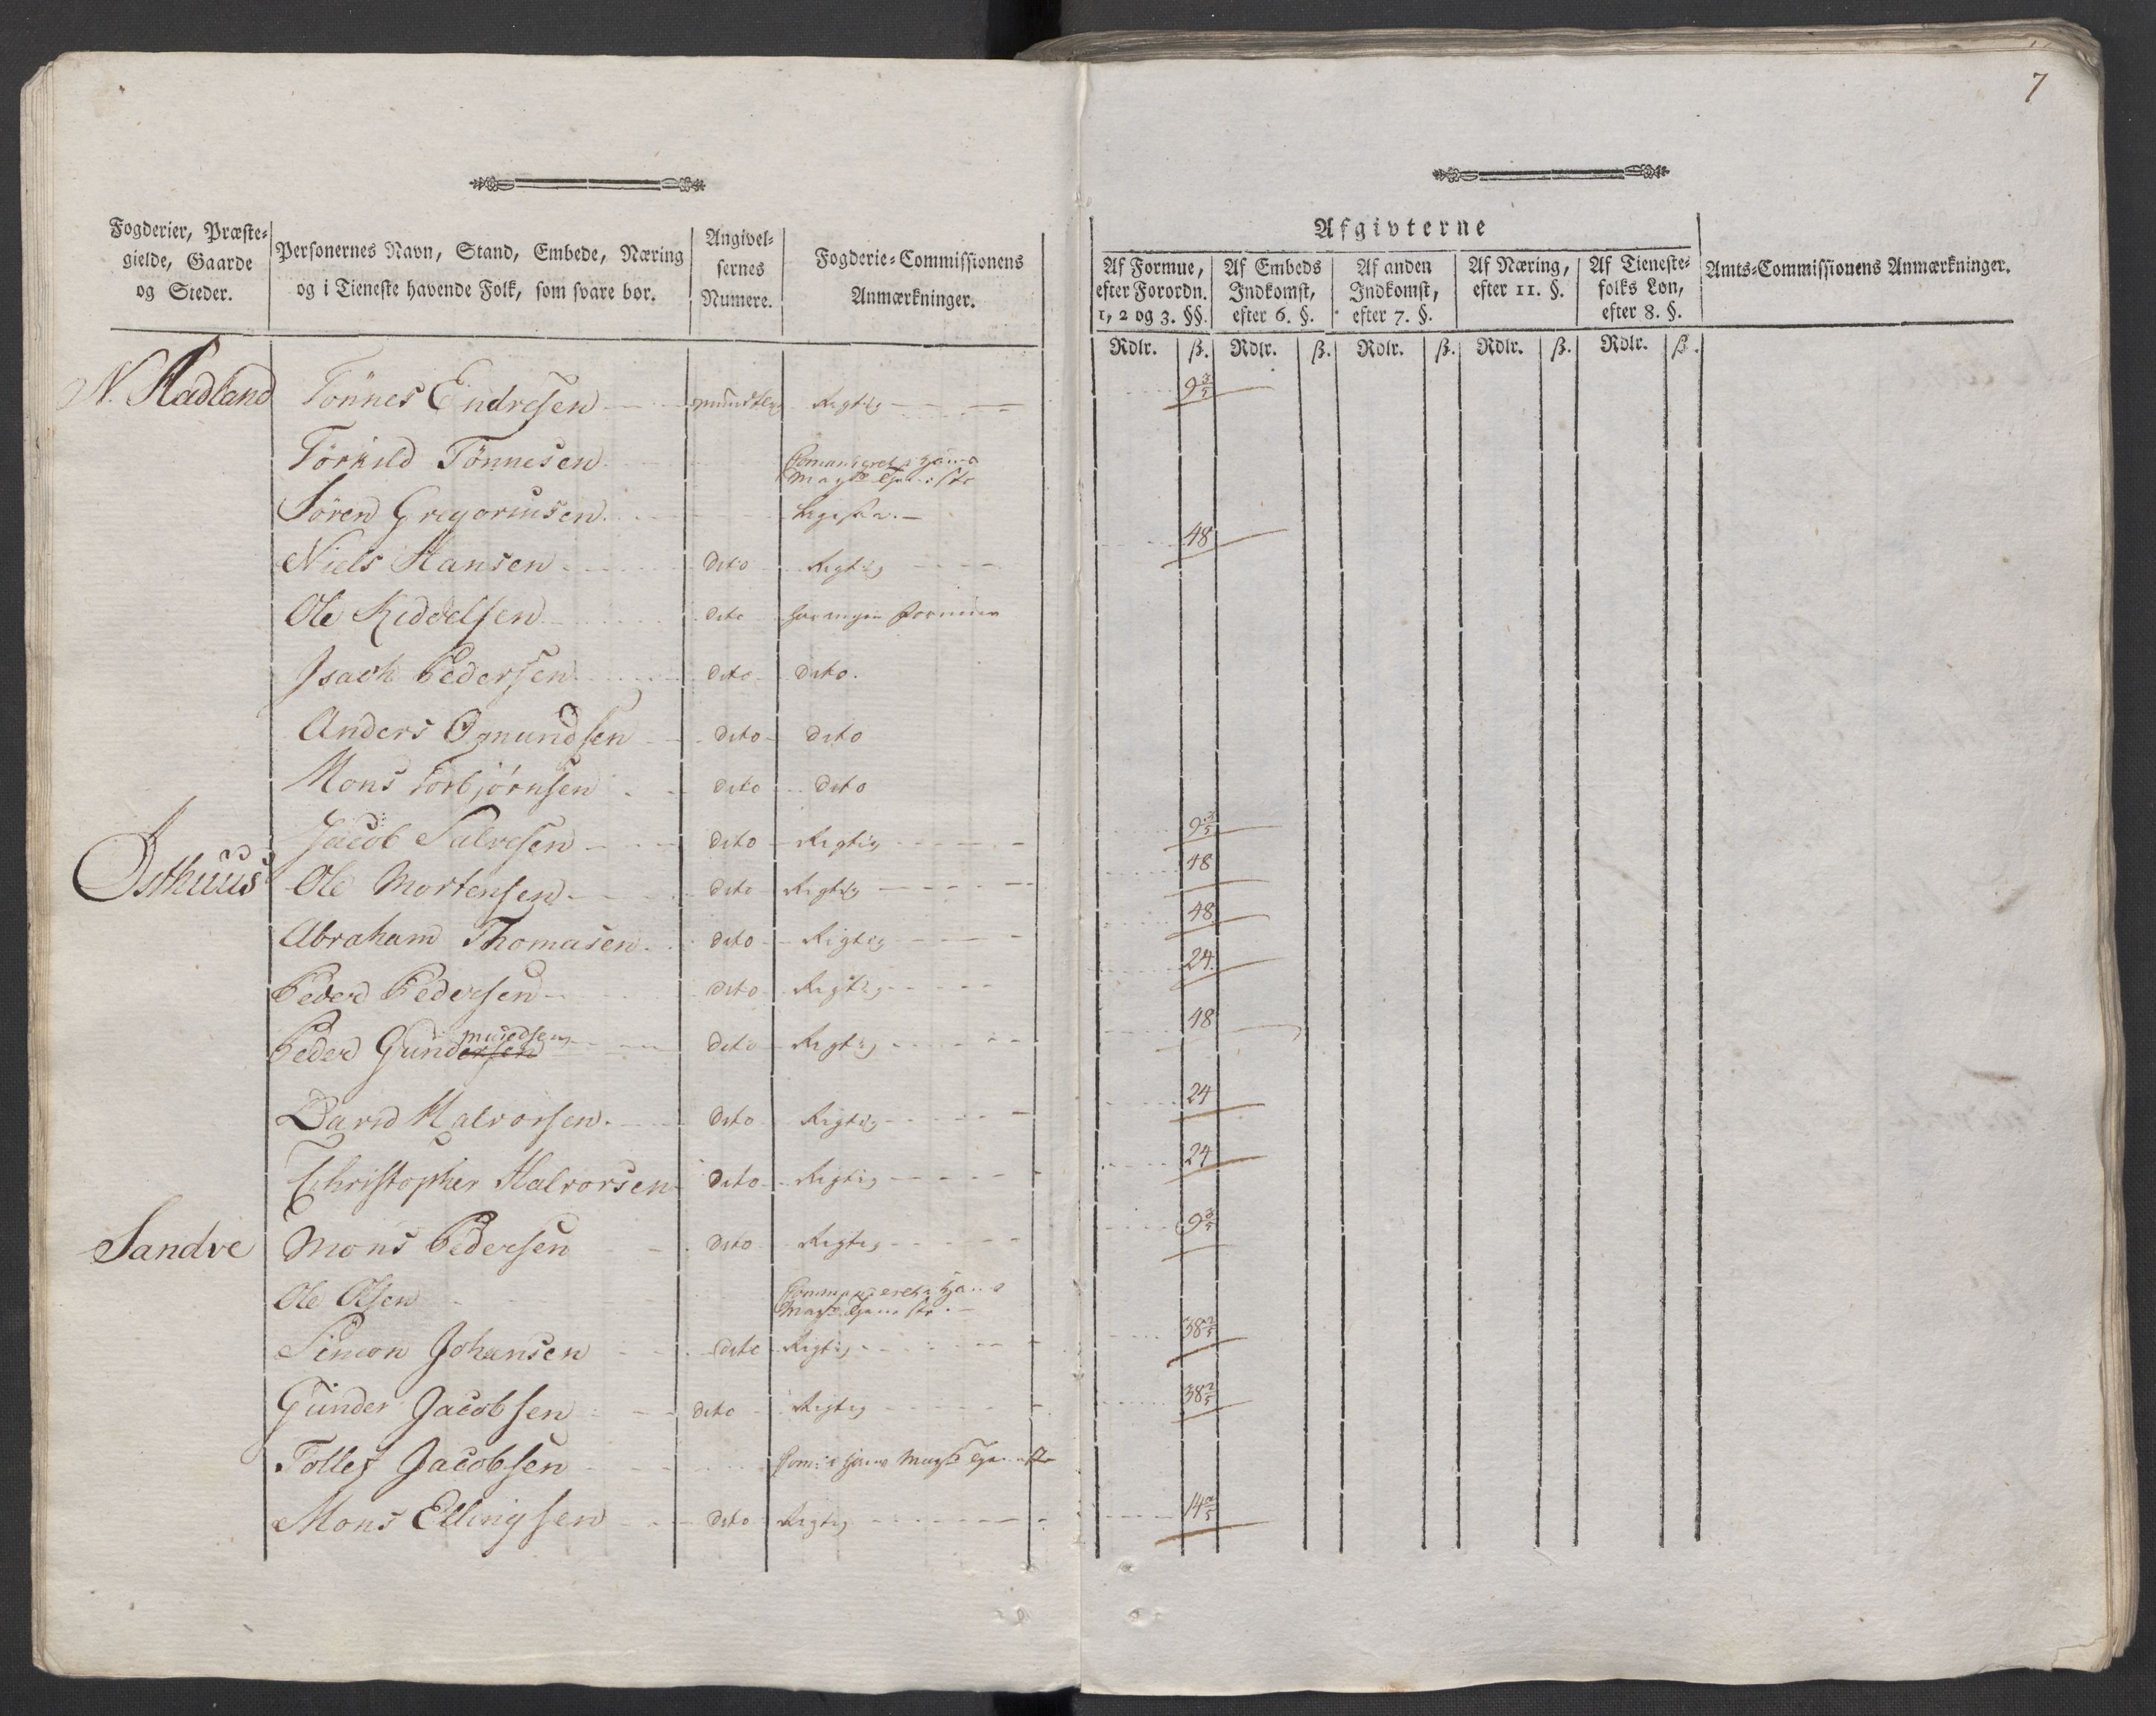 7
Fogderier, Præste-
gielde, Gaarde
og Steder.
Personernes Navn, Stand, Embede, Næring
og i Tieneste havende Folk, som svare bør.
Angivel-
sernes
Numere.
Fogderie-Commissionens
Anmærkninger.
Afgivterne
Af Formue,
efter Forordn.
1, 2 og 3. §§.
Af Embeds
Indkomst,
efter 6. §.
Af anden
Indkomst,
efter 7. §.
Af Næring,
efter 11. §.
Af Tieneste-
folks Løn,
efter 8. §.
Amts-Commissionens Anmærkninger.
Rdlr. ß. Rdlr. ß. Rdlr. ß. Rdlr. ß. Rdlr. ß.
N. Hadland Tönnes Endresen mundtlig Rigtig 9 3/5
Törkild Tönnesen
Sören Gregoriusen
Niels Hansen dito Rigtig 48
Ole Kiddelsen dito har ingen Formue
Isach Pedersen dito dito.
Anders Ogmundsen dito dito
Mons Torbjörnsen dito dito
Jacob Salvesen dito Rigtig 9 3/5
Osthuus Ole Mortensen dito Rigtig 48
Abraham Thomasen dito Rigtig 48
Peder Pedersen dito Rigtig 24
mundsen
Peder Gundersen dito Rigtig 48
David Halvorsen dito Rigtig 24
Christopher Halvorsen dito Rigtig 24
Sandve Mons Pedersen dito Rigtig 9 3/5
Ole Olsen
Simon Johansen dito Rigtig 38 2/5
Gunder Jacobsen dito Rigtig 38 2/5
Tollef Jacobsen
Mons Ellingsen dito Rigtig 14 2/5